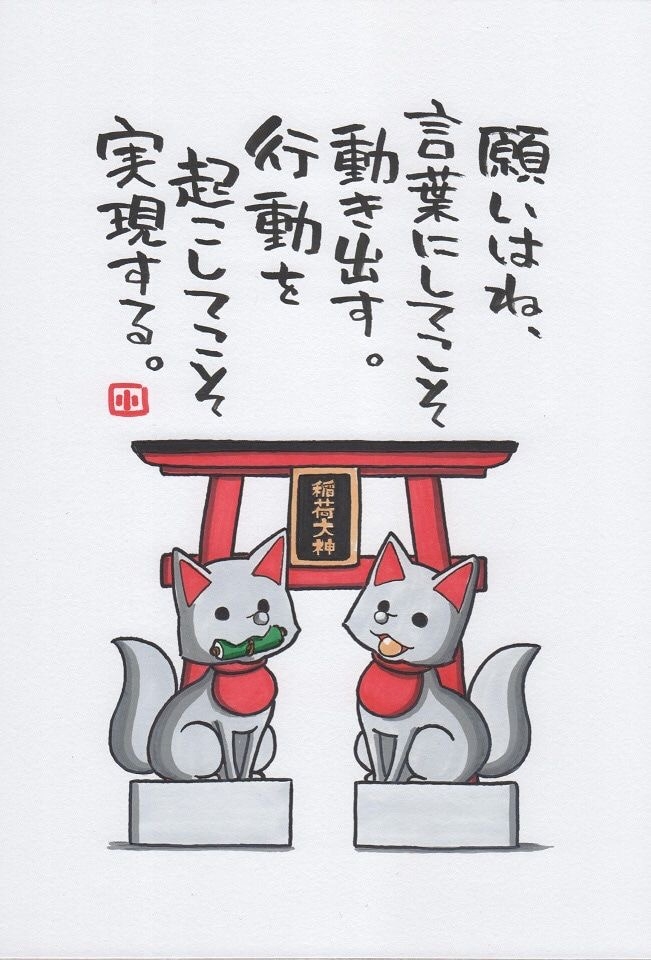 願いはね、
言葉にしてこそ
動き出す。
行動を
起こしてこそ
実現する。
小
稲荷大神